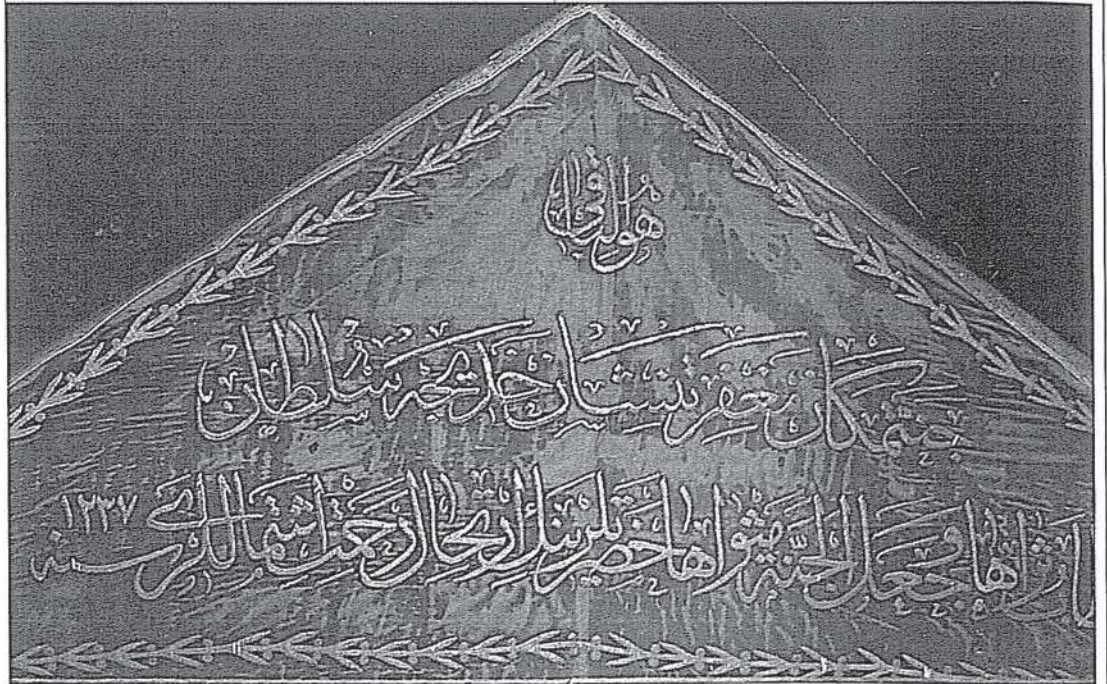 هو الباقى
جنتمكان مغفرتنشان خديجه سلطان
ثراها وجعل الجنة مثواها حضرتلرينك ارتحال رجعت اشتماللرى سنه ١٢٣٧